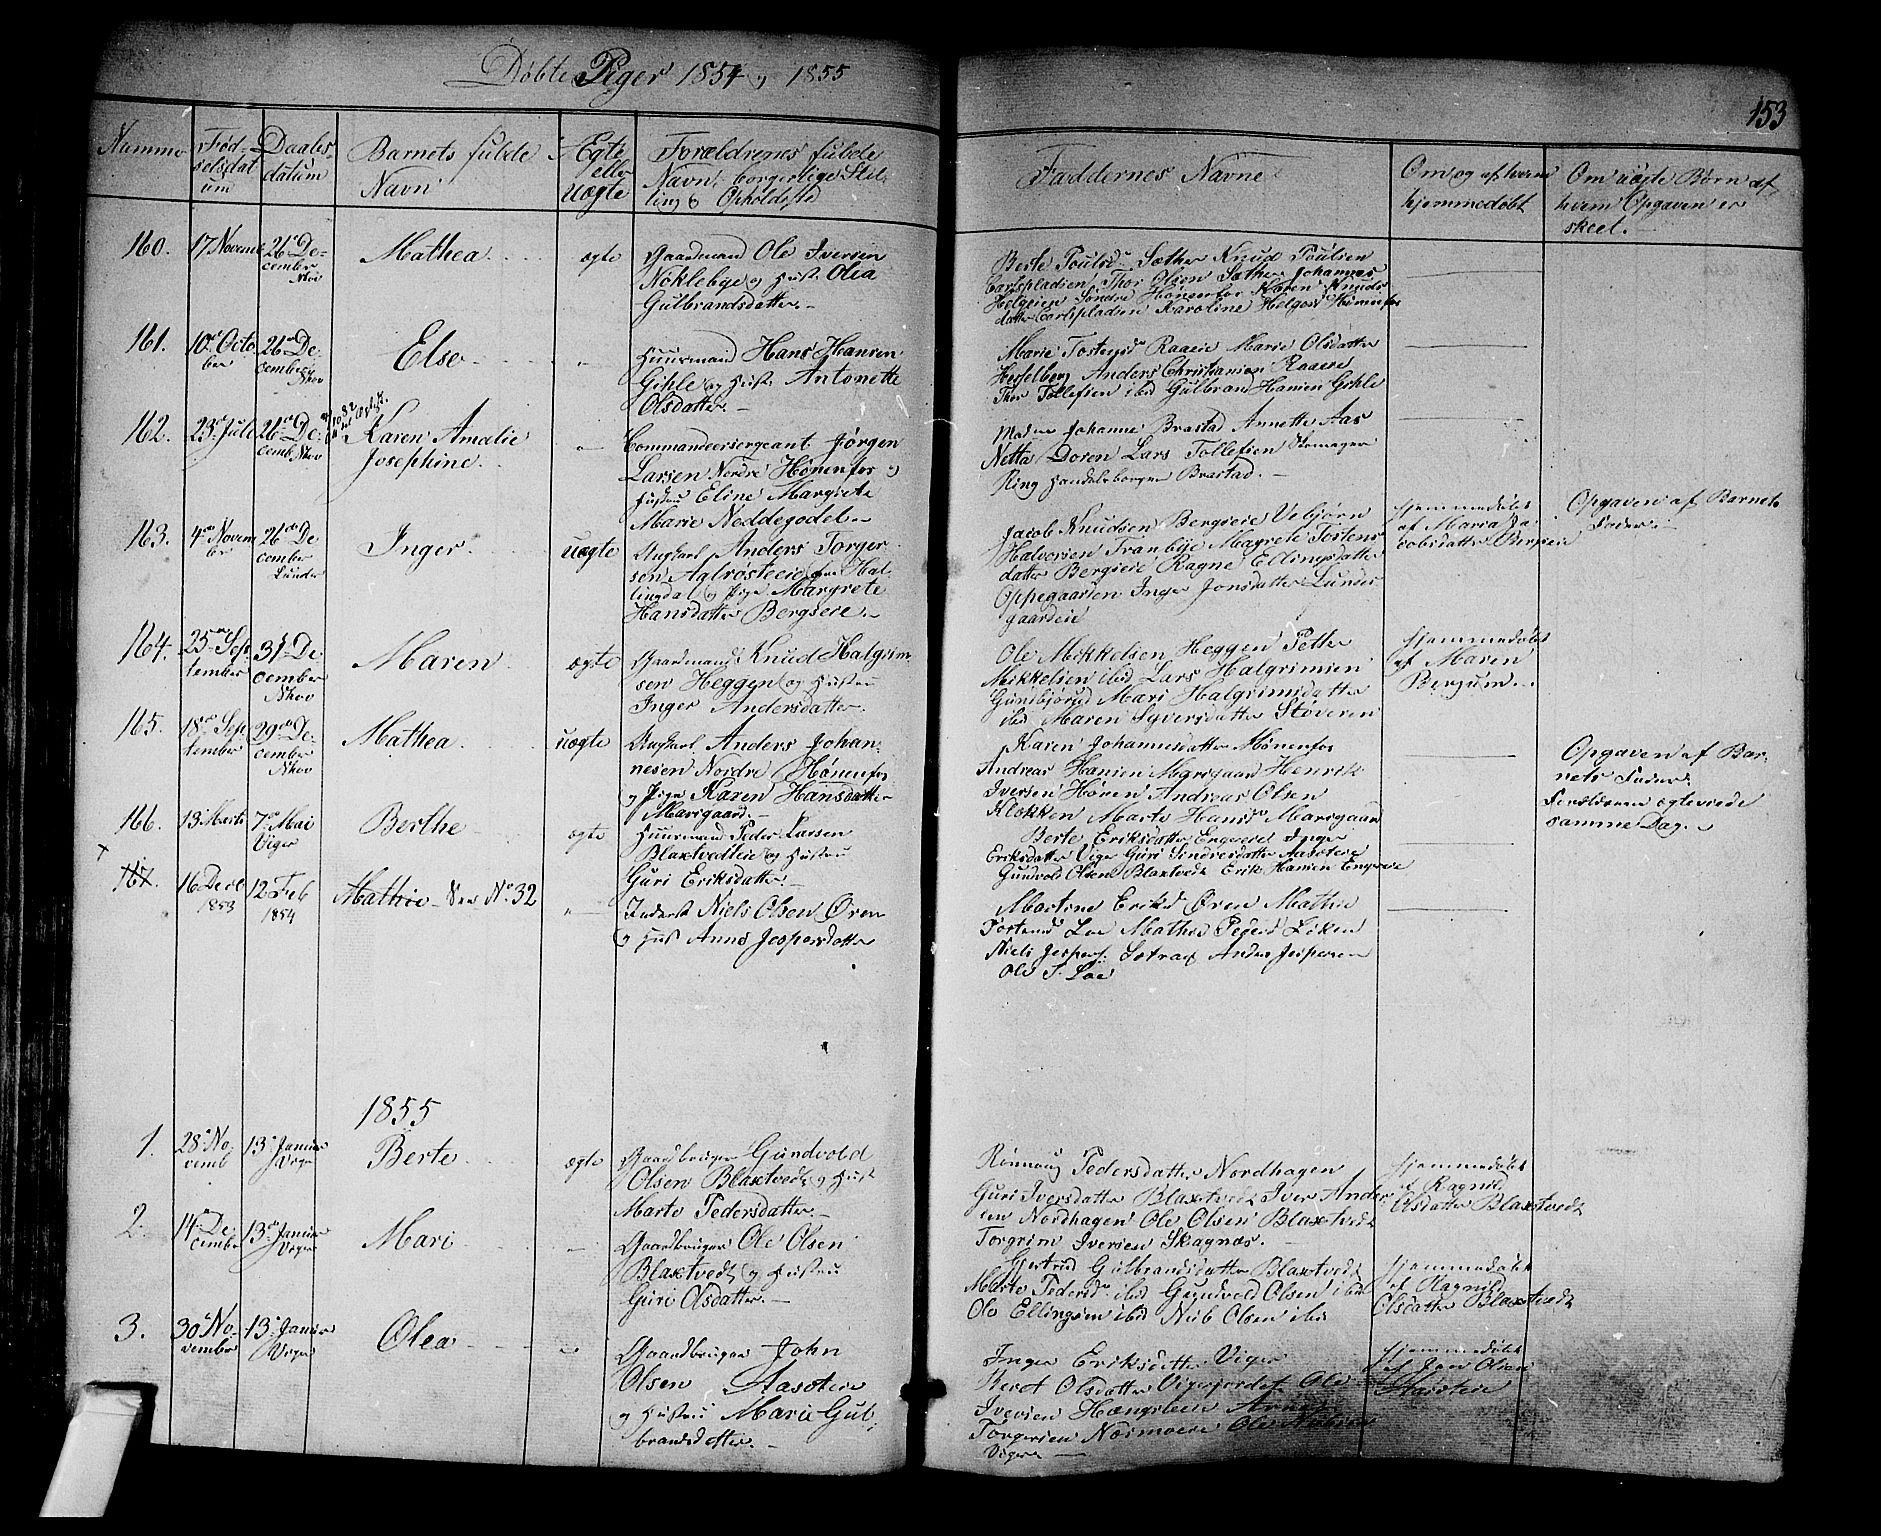 Døbte Piger 1854 og 1855
153
Nummer
Fød-
selsdat
um
Daabs-
datum
Barnets fulde
Navn
Ægte
eller
Uægte
Forældrenes fulde
Navn, borgerlige Stil-
ling og Opholdsted
Faddernes Navne
Om og af hvem
hjemmedøbt
Om uægte Børn af
hvem Opgaven er
skeet.
160.
17 Novemb
26 De-
cember
Skov
Mathea
ægte
Gaardmand Ole Iversen
Noklebye og Hustr Olia
Gulbrandsdatter
Berte Poulsd Sæther Knud Poulsen
Carlspladsen Thor Olsen Sæther Johannes
Helgesen Søndre Hønenfos Karen Knuds
datter Carlspladsen Karoline Helgesd Hønenfos
161.
10 Octo
ber
26 De-
cember
Skov
Else
Huusmand Hans Hansen
Gihle og Hustr Antonette
Olsdatter
Marie Marie Olsdatter
Hesselberg Anders Christiansen
Thor Tollefsen ibid Gulbrand Hansen Gihle
162.
23 Juli
26 De-
cemb Skov
Karen Amalie
Josephine
Commandeersergeant Jørgen
Larsen Nordre Hønenfos og
Hustru Eline Margrete
Marie Neddegodel
Madme Johanne Brastad Annette Aas
Netta Doren Lars Tollefsen
Ring Handelsborger Brastad.
163.
4 Novem
ber
26 De
cember
Lunder
Inger
uægte
Ungkarl Anders Torger-
sen fra Hal-
lingdal og Pige Margrete
Hansdatter Bergseie
Jacob Knudsen Bergseie Vebjørn
Halvorsen Tranbye Magrete Tostens
datter Bergseie Ragne Ellingsdatter
Oppegaarden Inger Jonsdatter Lunds
gaardeie
Hjemmedøbt
af Maria Ja-
cobsdatter
Opgaven af Barnets
Fader
164.
25 Sep
tember
31 De
cember
Skov
Maren
ægte
Gaardmand Knud Halgrim
sen Heggen og Hustru
Inger Andersdatter
Ole Mikkelsen Heggen Petter
Mikkelsen ibid Lars Halgrimsen
Gunbjørud Mari Halgrimsdatter
ibid Maren Syversdatter Støveren
Hjemmedøbt
af Maren
Bergum
165.
18 Sep
tember
29 De-
cember
Skov
Mathea
uægte
Ungkarl Anders Johan-
nesen Nordre Hønenfos
og Pige Karen Hansdatter
Marigaard
Karen Johannesdatter Hønenfos
Andreas Hansen Marigaard Henrik
Iversen Hønen Andreas Olsen
Klokken Marte Hansd Marigaard
Opgaven af Bar-
nets Fader
Forældrene ægteviede
samme Dag
166.
13 Marts
7 Mai
Viger
Berthe
ægte
Huusmand Peder Larsen
Blaxtvedteie og Hustru
Guri Eriksdatter
Berte Eriksdatter Engereie Inger
Eriksdatter Viger Guri Sindresdatter Aasetere
Gundvold Olsen Blaxtvedt Erik Hansen Engereie
167.
16 Decb
1853
12 Feb
1854
Mathia No 32
Inderst Niels Olsen Øren
og Hust Anne Jespersdatter
Martine Eriksd Øren Mathia
Tostensd Loe Mathea Pedersd Løken
Niels Jespers. Sætrang Anders Jespersen
Ole T. Loe
1855
1.
28 No-
vemb
13 Januar
Viger
Berte
ægte
Gaardbruger Gundvold
Olsen Blaxtvedt og Hust
Marte Pedersdatter
Rønnaug Pedersdatter Nordhagen
Guri Iversdatter Blaxtvedt Iver Ander
sen Nordhagen Ole Olsen Blaxtvedt
Torgrim Iversen Skagnæs.
Hjemmedøbt
af Ragnild
Olsdatter Blaxtvedt
2.
14 De-
cember
13 Januar
Viger
Mari
Gaardbruger Ole Olsen
Blaxtvedt og Hustru
Guri Olsdatter
Gjertrud Gulbrandsdatter Blaxtvedt
Marte Pedersd ibid Gundvold Olsen ibid
Ole Ellingsen ibid Niels Olsen ibid
Hjemmedøbt
af Ragnild
Olsdatter Blaxtvedt
3.
30 No-
vember
13 Januar
Viger
Olea
Gaardbruger John
Olsen Aasetere
og Hustru Marie Gul-
brandsdatter
Inger Eriksdatter Viger
Berot Olsdatter Vigerjordet Ole
Iversen Arne
Torgersen Næsmoeie Ole Nielsen
Viger
Hjemmedøbt
af Joen Olsen
Aasetere